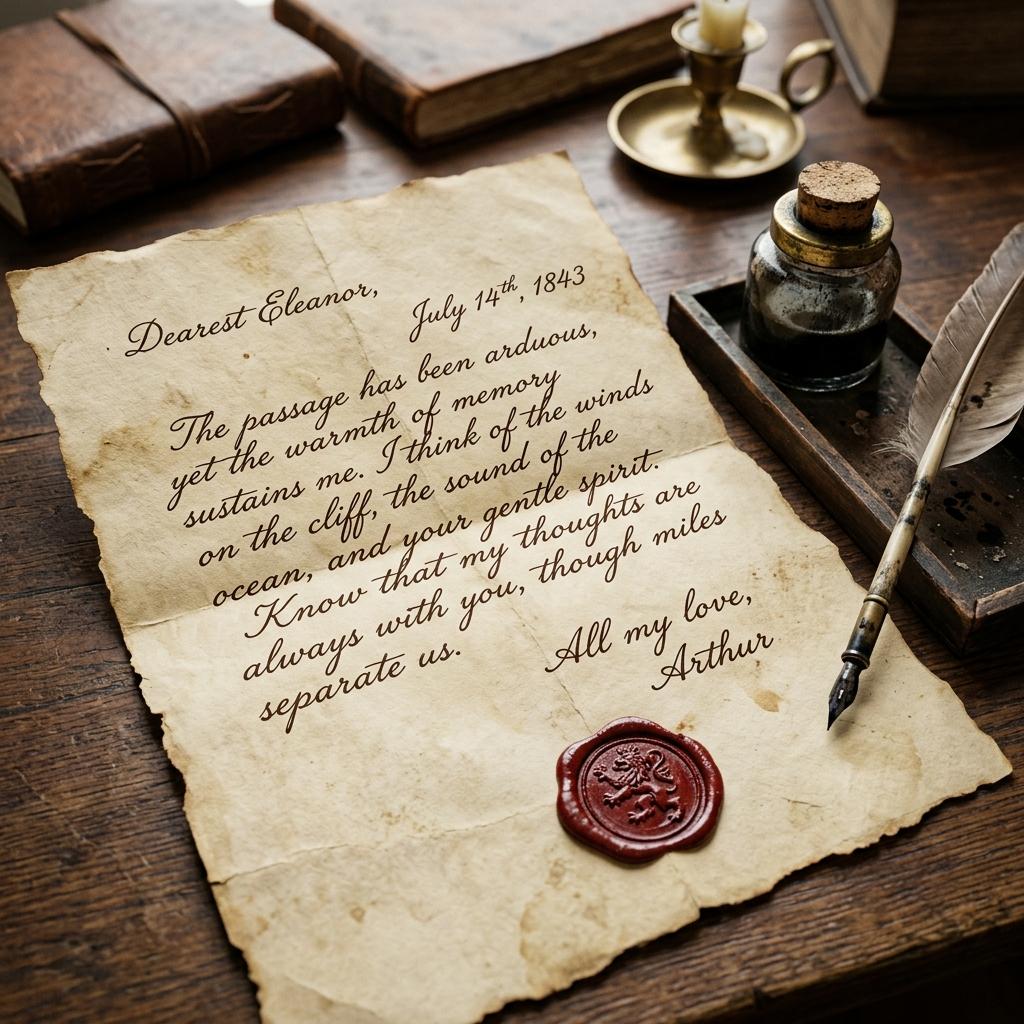 Dearest Eleanor,
July 14th, 1843
The passage has been arduous,
yet the warmth of memory
sustains me. I think of the winds
on the cliff, the sound of the
ocean, and your gentle spirit.
Know that my thoughts are
always with you, though miles
separate us.
All my love,
Arthur